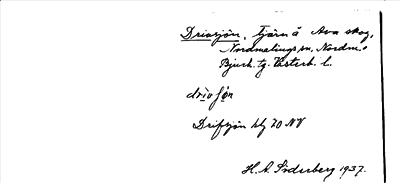 Drivsjön, tjärn å Ava skog,
Nordmalings sn, Nordm. o
Bjurh. tg. Västerb. l.
drivʃön
Drifsjön blg 70 NV
H. A. Söderberg 1937.